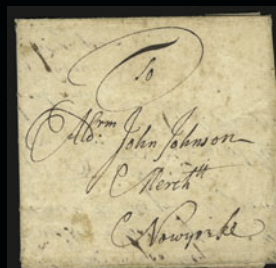 To
Aldrm: John Johnson
Merchtt
Newyorke